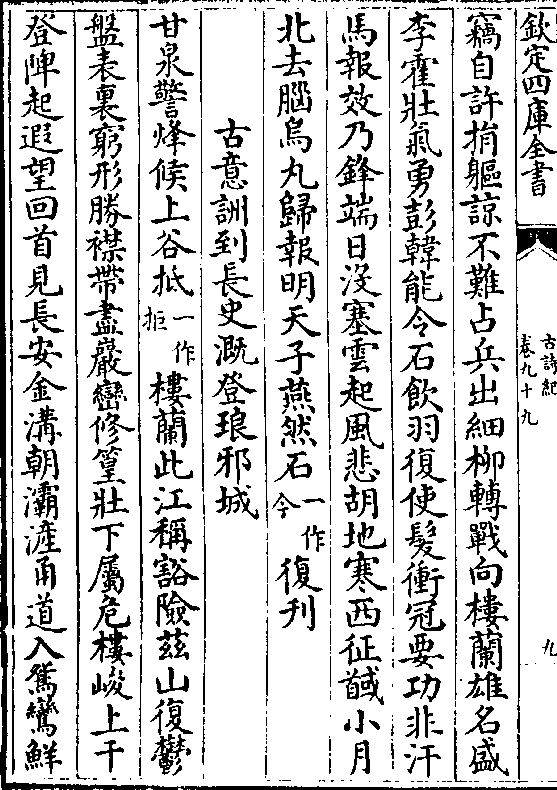 欽定四庫全書
古詩紀
卷九十九
九
竊自許捐軀諒不難占兵出細柳轉戰向樓蘭雄名盛
李霍壯氣勇彭韓能令石飲羽復使髮衝冠要功非汗
馬報效乃鋒端日没塞雲起風悲胡地寒西征馘小月
北去腦烏丸歸報明天子燕然石一作今復刋
古意詶到長史溉登琅邪城
甘泉警烽候上谷抵一作拒樓蘭此江稱豁險茲山復鬱
盤表裏窮形勝襟帶盡巖巒修篁壯下屬危樓峻上干
登陴起遐望回首見長安金溝朝灞滻甬道入鴛鸞鮮